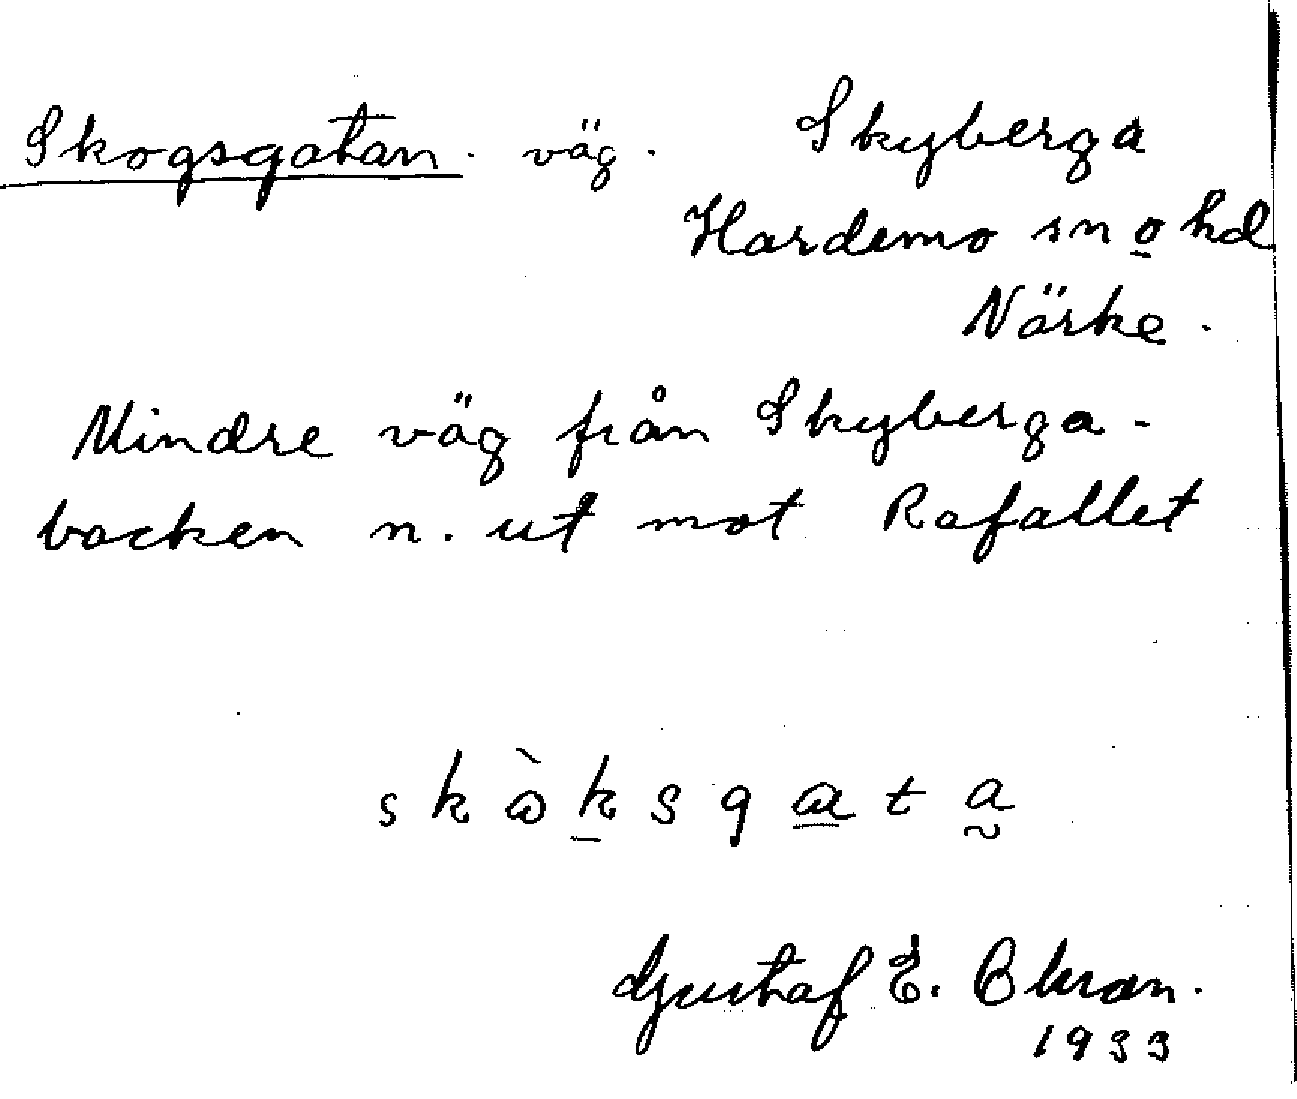 Skogsgatan. väg. Skyberga
Hardemo sn o hd
Närke.
Mindre väg från Skyberga-
backen n. ut mot Rafallet
Gustaf E.
1933